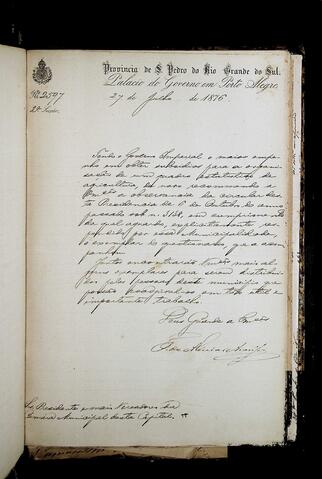 Provincia de S. Pedro do Rio Grande do Sul.
Palacio do Governo em Porto Alegre
Nº 2597
27 de Julho de 1876.
2ª Secção.
Tendo o Governo Imperial o maior empe-
nho em obter subsidios para a organi-
sação de um quadro estatistico da
agricultura, de novo recommendo a
observancia da circular des-
ta Presidencia de de Outubro anno
passado sob n. em cumprimento
da qual aguardo, explicitamente res-
pondido por essa Municipalidade,
o exemplar do questionario que a acom-
panhou.
Junto encontrarão mais al-
guns exemplares para serem distribui-
dos pelas pessoas deste municipio que
possão em tão util e
importante trabalho.
Deos Guarde a
Snr. Presidente e mais Vereadores da
Camara Municipal desta Capital.